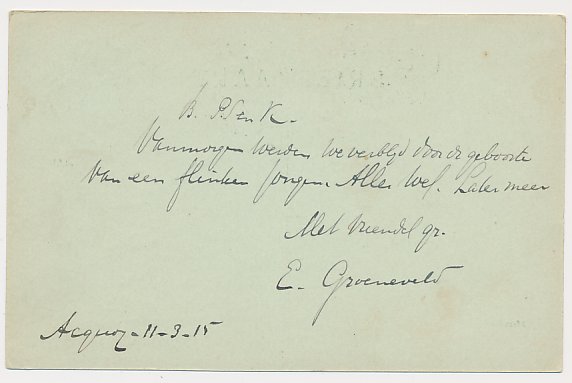 B. P. en K.
Vanmorgen werden we verblijd door de geboorte
van een flinken jongen. Alles wel. Later meer
Met vriendel gr.
E. Groeneveld
Acquoy - 11-3-15